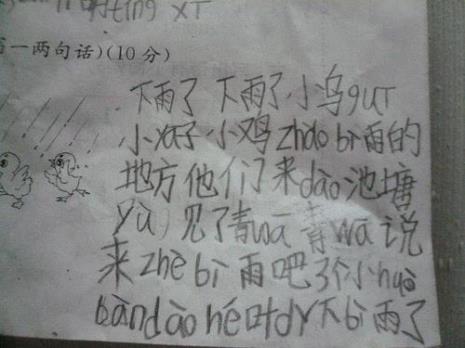 ting xI
一两句话)(10分)
下雨了 下雨了 小乌guī
小yā子 小鸡 zhǎo bì雨的
地方他们了来dào池塘
yù)见了青wā 青wā说
来zhè bì雨吧 3个小huǒ
bàn dào hé叶dǐ下bì雨了